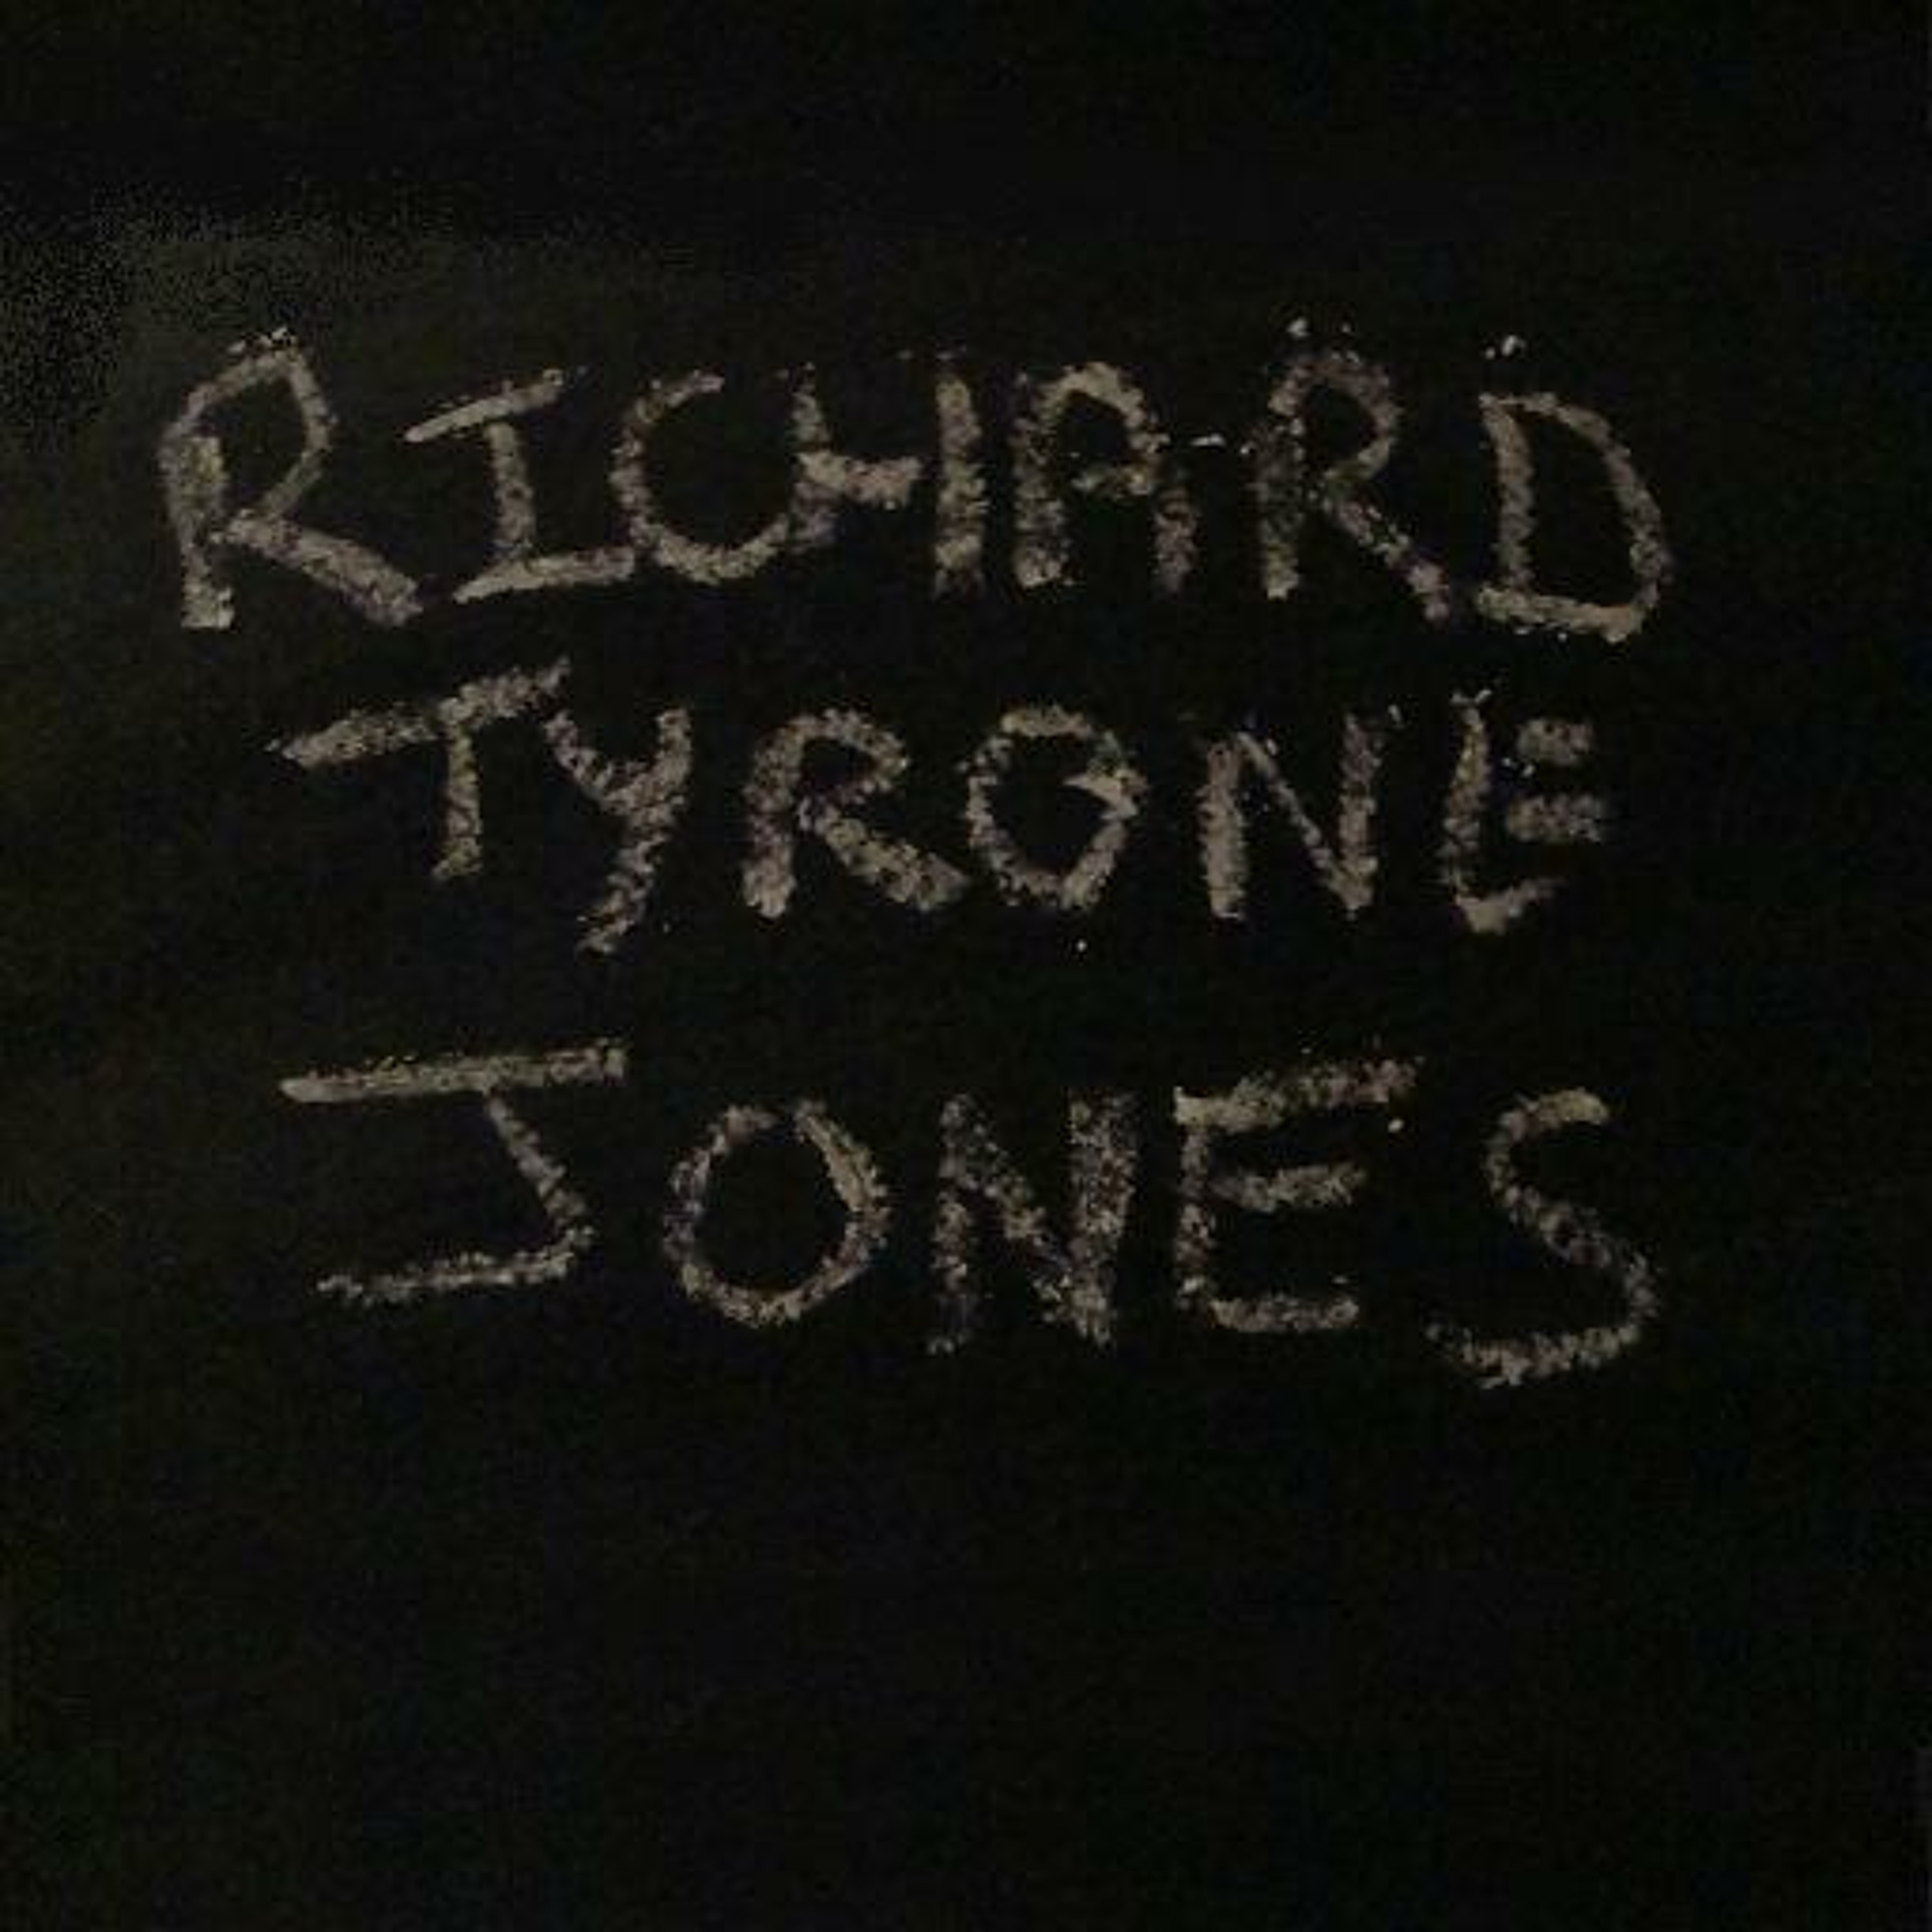 RICHARD
TYRONE
JONES